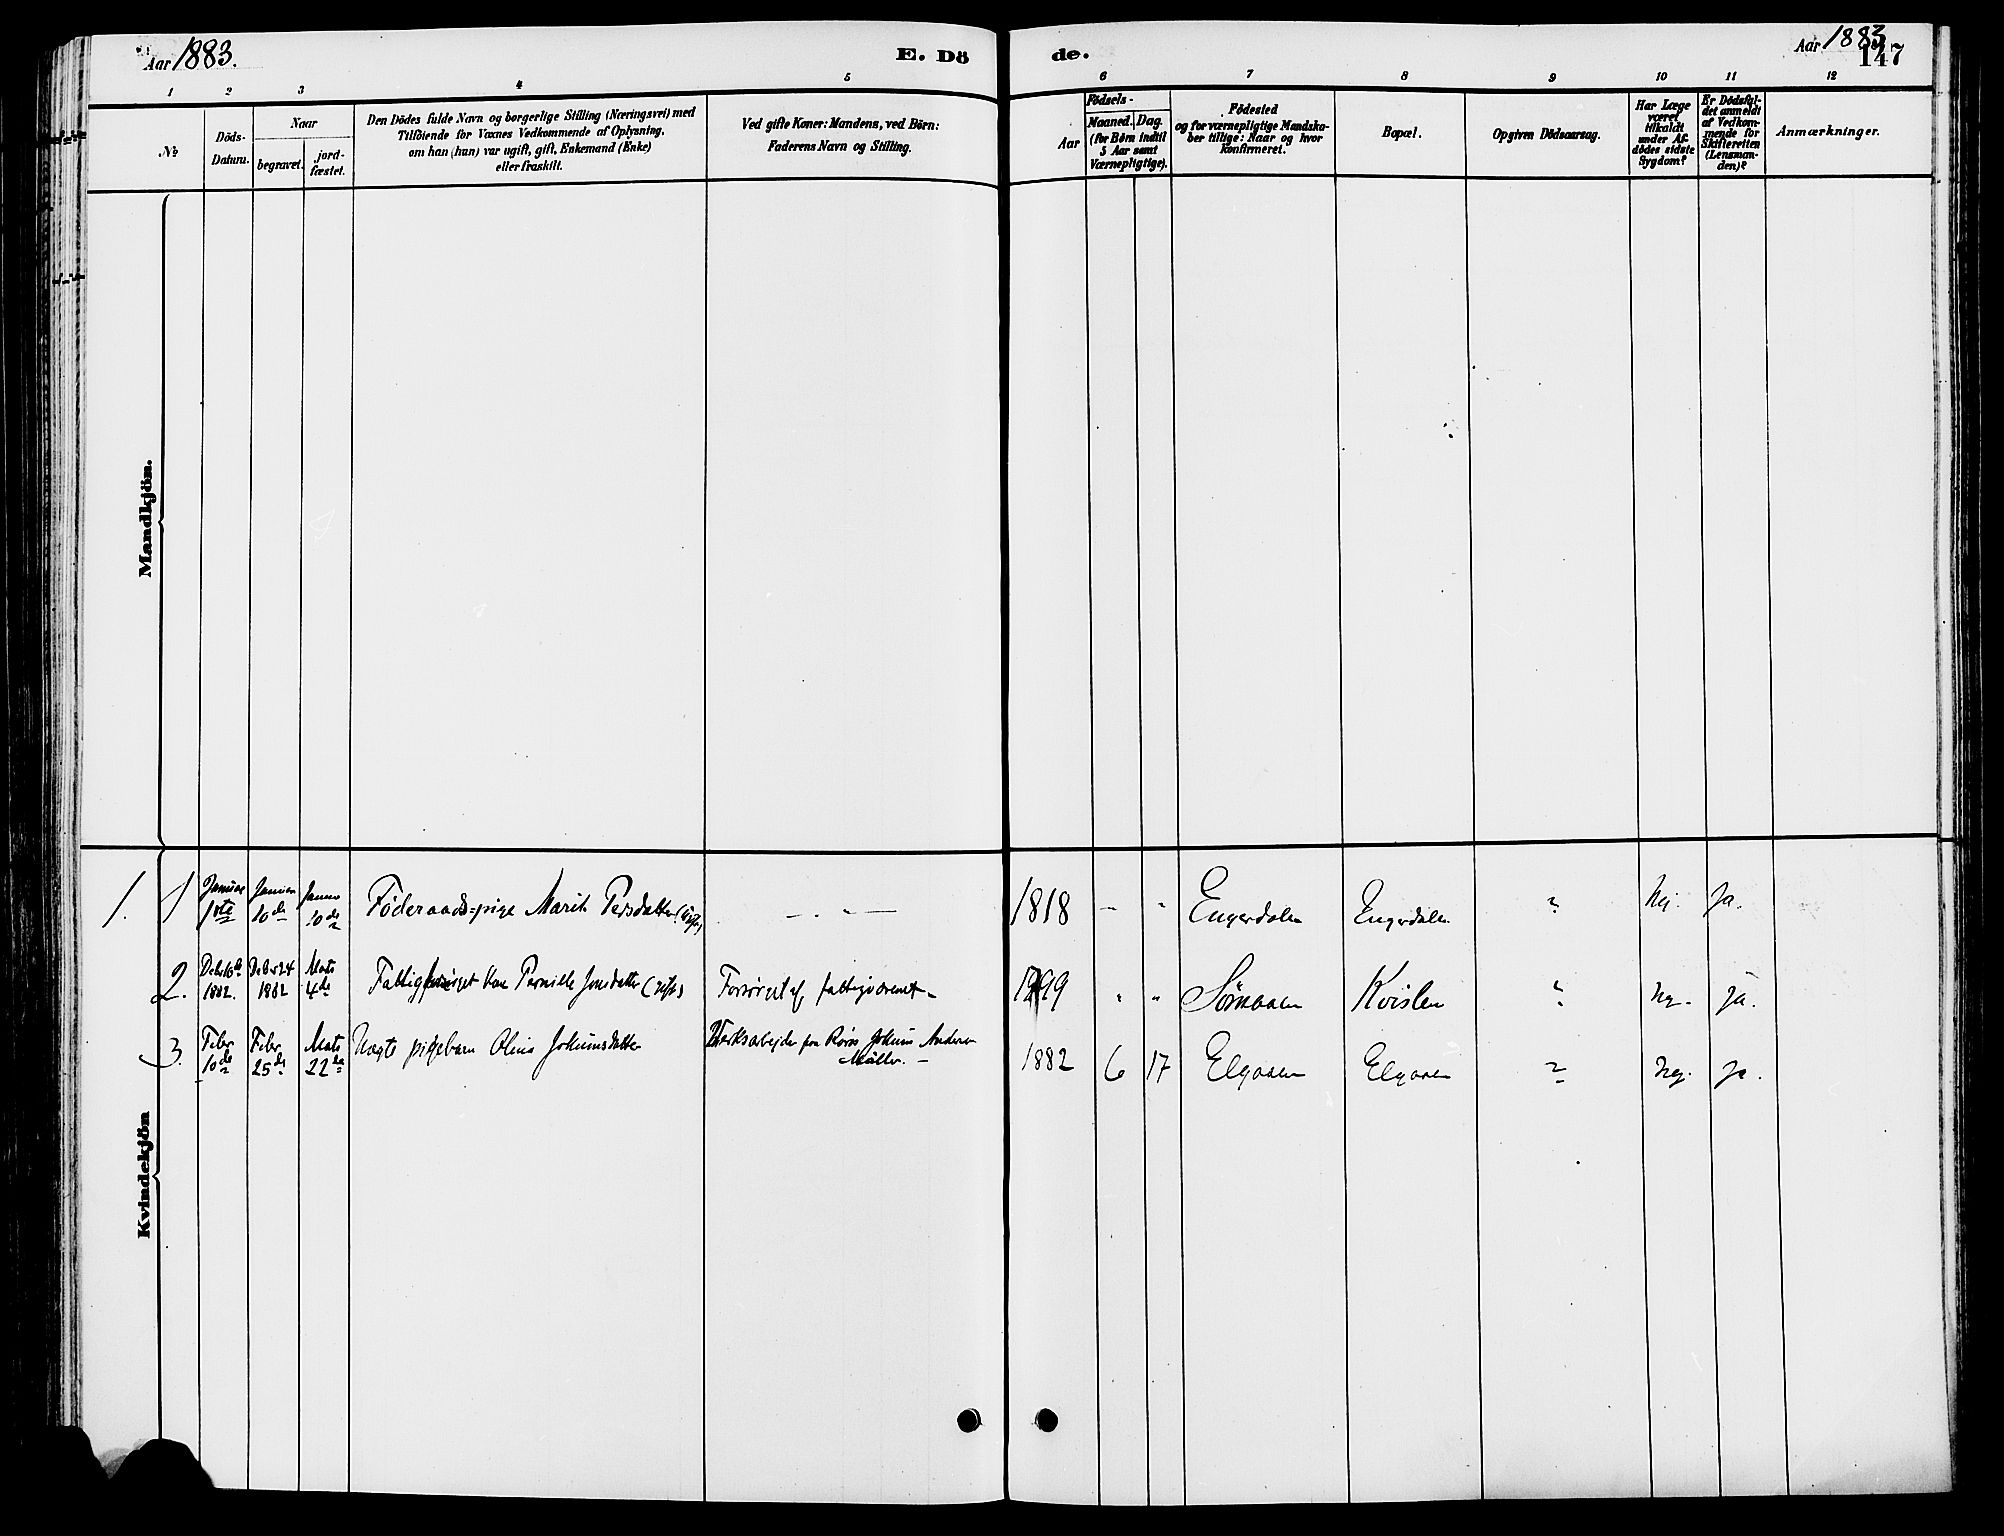 Aar 1883.
E. Dö
de.
Aar 1883
147
1 2 3 4 5 6 7 8 9 10 11 12
No
Döds-
Datum.
Naar
begravet.
jord-
fæstet.
Den Dödes fulde Navn og borgerlige Stilling (Næringsvei) med
Tilföiende for Voxnes Vedkommende af Oplysning,
om han (hun) var ugift, gift, Enkemand (Enke)
eller fraskilt.
Ved gifte Koner: Mandens, ved Börn:
Faderens Navn og Stilling.
Födsels-
Aar
Maaned. Dag.
(for Børn indtil
5 Aar samt
Værnepligtige).
Födested
og for værnepligtige Mandska-
ber tillige: Naar og hvor
konfirmeret.
Bopæl.
Opgiven Dödsaarsag.
Har Læge
været
tilkaldt
under Af-
dödes sidste
Sygdom?
Er Dödsfal-
det anmeldt
af Vedkom-
mende for
Skifteretten
(Lensman-
den)?
Anmærkninger.
Mandkjön.
Kvindekjön
1. 1 Januar 1ste Januar 10de Januar 10de Föderaads-pige Marit Persdatter — „ — 1818 - " Engerdalen Engerdalen ? Nej. Ja.
2. 1882. 24 1882 Marts 4de Pernille Jonsdatter Forsörget af fattigvæsenet 1799 " " Sömaaen Kvislen ? Nej. Ja.
3. Febr 10de Febr 25de Marts 22de pigebarn Oline Jokumsdatter Værksarbejder fra Røros Jokum Andersen
Müller. — 1882 6 17 Elgaaen Elgaaen ? Nej. Ja.